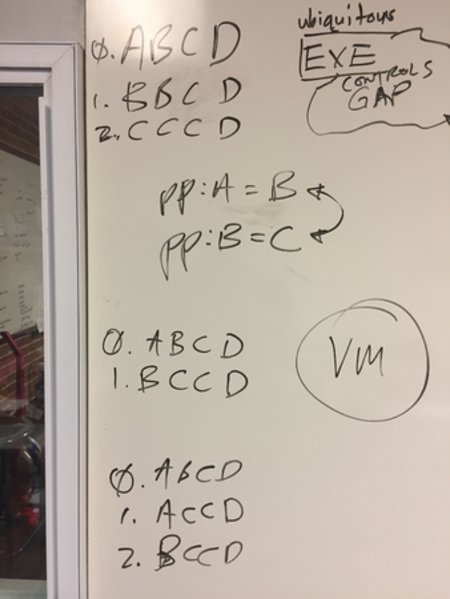 Ø. ABCD
1. BBCD
2. CCCD
ubiquitous
EXE
CONTROLS
GAP
PP:A=B
PP:B=C
Ø. ABCD
1. BCCD
VM
Ø. ABCD
1. ACCD
2. BCCD